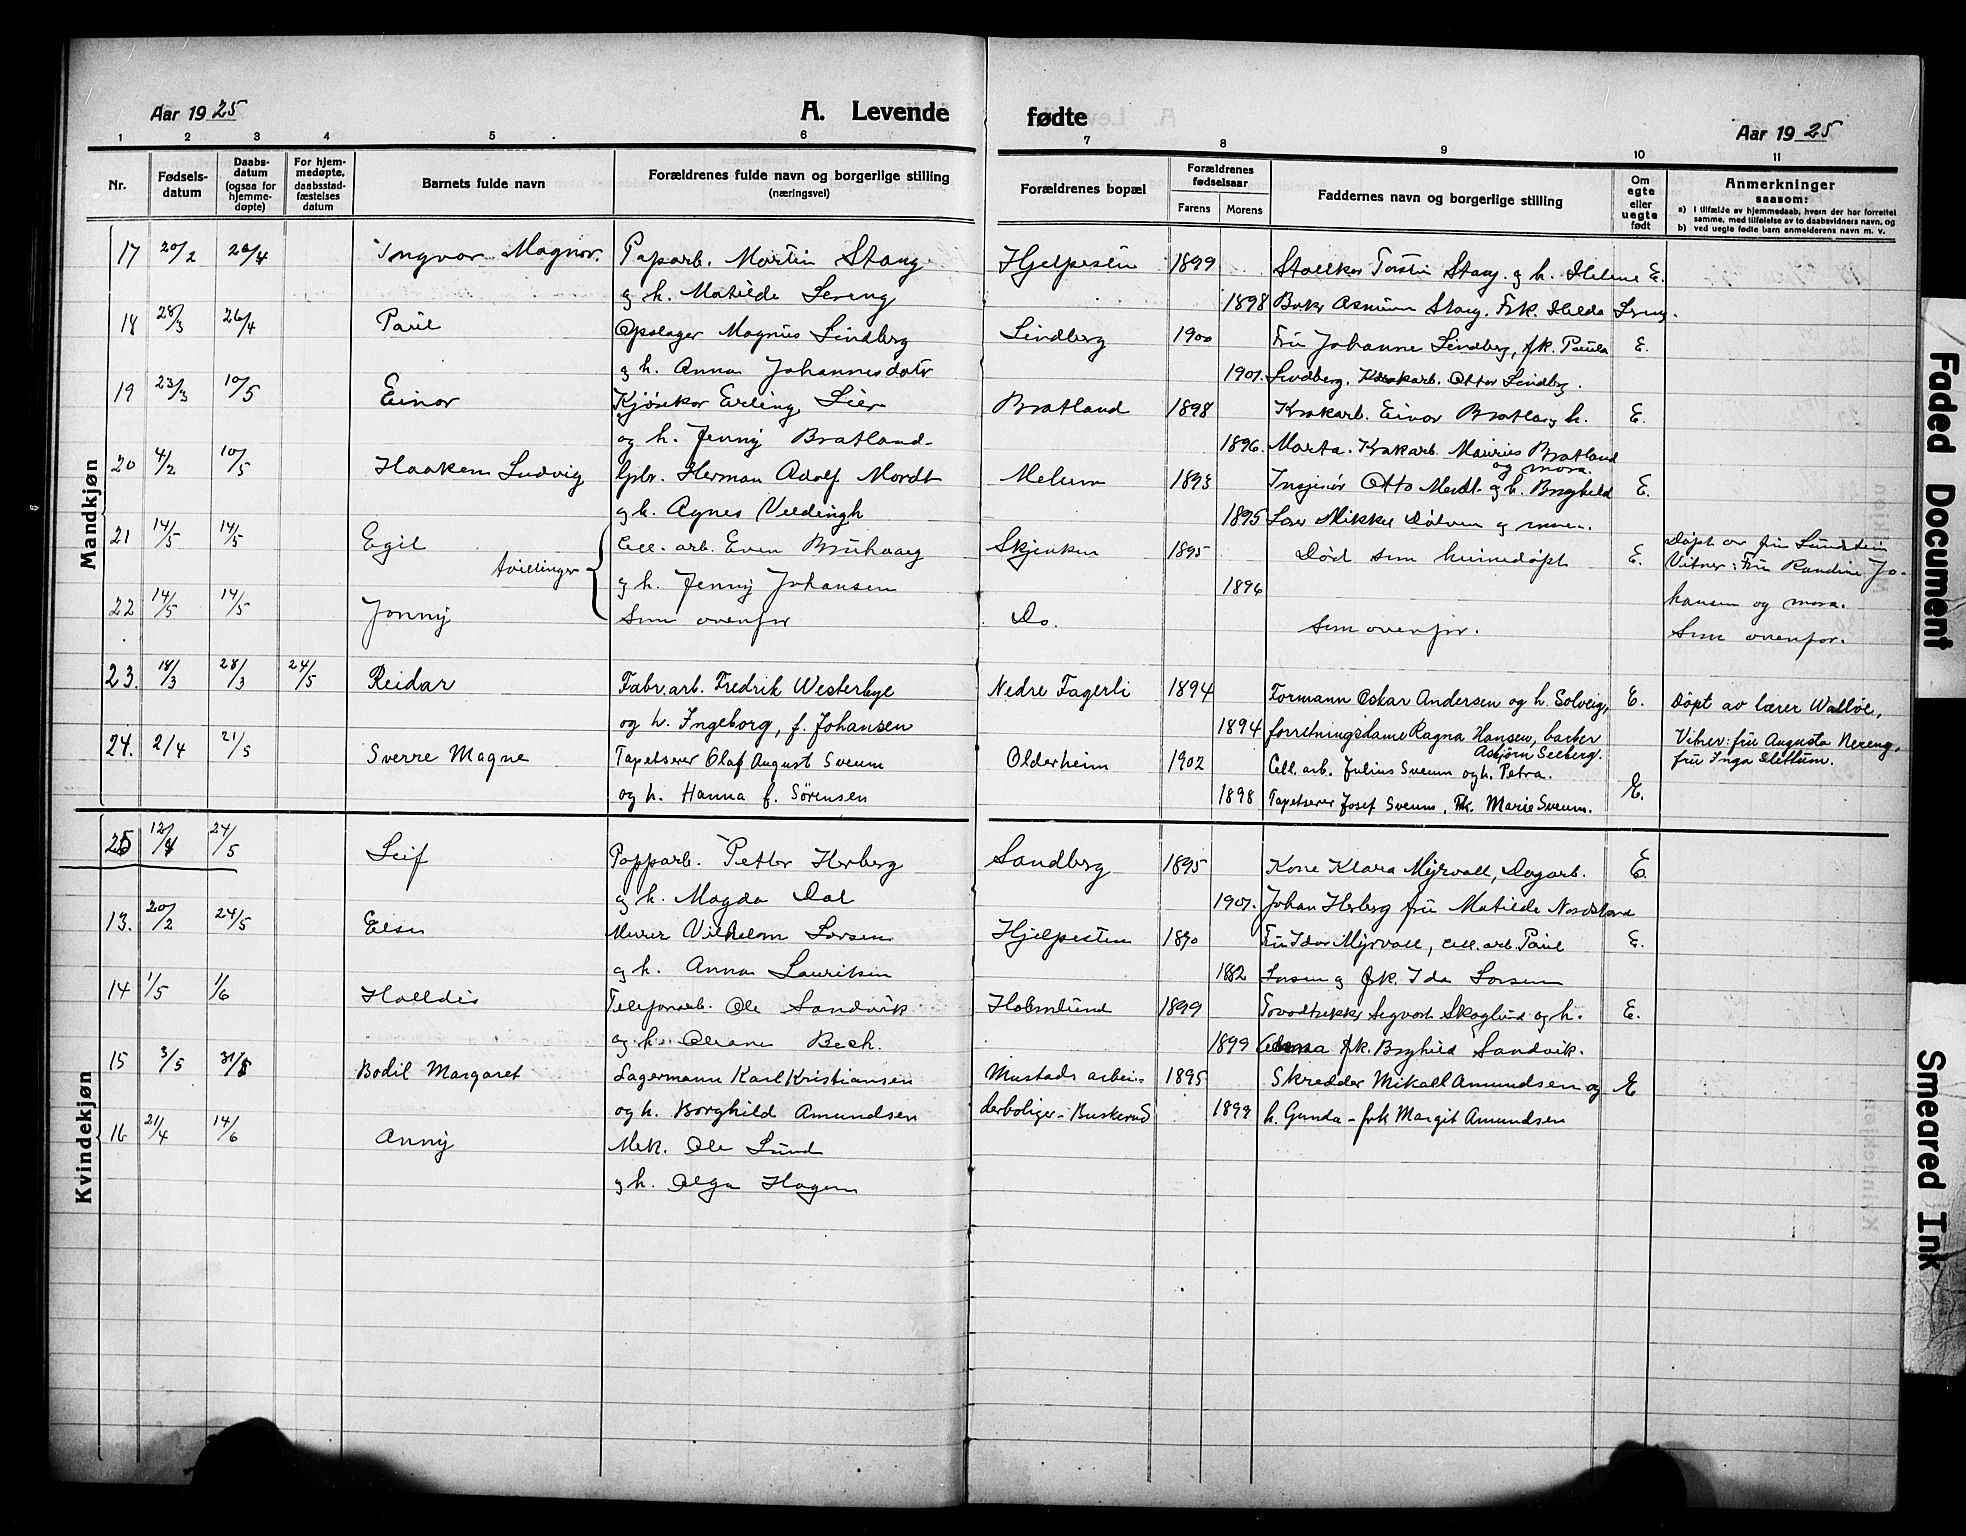 Aar 1925
A. Levende fødte
Aar 1925
1 2 3 4 5 6 7 8 9 10 11
Nr.
Fødsels-
datum
Daabs-
datum
(ogsaa for
hjemme-
døpte)
For hjem-
medøpte,
daabsstad-
fæstelses
datum
Barnets fulde navn
Forældrenes fulde navn og borgerlige stilling
(næringsvei)
Forældrenes bopæl
Forældrenes
fødselsaar
Farens Morens
Faddernes navn og borgerlige stilling
Om
egte
eller
uegte
født
Anmerkninger
saasom:
a) I tilfælde av hjemmedaab, hvem der har forrettet
samme, med tilføielse av to daabsvidners navn. og
b) ved uegte fødte barn anmelderens navn m. v.
Mandkjøn
17 20/2 26/4 Ingvar Magnor. Paparb. Martin Stang Hjelpesten 1899 Torstein Stang. og h. Helene E.
og h. Matilde Sereng 1898 Asmunn Stang. Frk. Hilda
18 28/3 26/4 Paul Opslager Magnus Lindberg Lindberg 1900 Fru Johanne Lindberg, frk. Paula E.
og h. Anna Johannesdatr 1901. Lindberg. Otter Lindbrg.
19 23/3 10/5 Einar Kjøsekar Erling Lier Bratland 1898 Krakarb. Einar Bratla og h. E.
og h. Jenny Bratland 1896. Marta. Krakarb. Maurits Bratland
og mora.
20 4/2 10/5 Haakem Ludvig Gbr. Herman Adolf Mordt Melum 1893 Ingeniør Otto Mordt. og h. Borghild E.
og h. Agnes Veldingh 1895 Mikkel Dølven og moren.
21 14/5 14/5 Egil Cell. arb. Even Bruhaug Skjenken 1895 Død som heimedøpt E. Døpt av fru Sundstein
tvillinger og h. Jenny Johansen 1896 Vitner: Fru Randine Jo-
hansen og mora.
22 14/5 14/5 Jonny Som ovenfor Do. Som ovenfor. Som ovenfor.
23. 18/3 28/3 24/5 Reidar Fabr.arb. Fredrik Westerbye Nedre Fagerli 1894 Formann Oskar Andersen og h. Solveig, E. Døpt av lærer Walløe,
og h. Ingeborg, f. Johansen 1894 forretningsdame Ragna Hansen, barber Vitner: fru Augusta Nereng,
Asbjørn Seeberg. fru Inga Slettum.
24. 2/4 21/5 Sverre Magne Tapetserer Olaf August Sveum Olderheim 1902 Cell. arb. Julius Sveum og h. Petra.
og h. Hanna f. Sørensen 1898 Tapetserer Josef Sveum, Frk. Marie Sveum. E.
25 12/4 24/5 Leif Papparb. Petter Herberg Sandberg 1895 Kone Klara Myrvall, Dagarb. E.
og h. Magda Dal 1901. Johan Herberg fru Matilde Nordstrand
Kvindekjøn
13. 20/2 24/5 Else Murer Vilhelm Larsen Hjelpesten 1890 Fru Ida Myrvall, cell. arb. Paul E.
og h. Anna Lauritsen 1882 Larsen og frk. Ida Larsen
14 1/5 1/6 Halldis Telefonarb. Ole Sandvik Holmlund 1899 Sigvart Skoglund og h. E.
og h. Oleane Bech. 1899 frk. Borghild Sandvik.
15 3/5 31/5 Bodil Margaret Lagermann Karl Kristiansen Mustads arbei- 1895 Skredder Mikael Amundsen og E
og h. Borghild Amundsen derboliger - Buskerud 1899 h. Gunda - frk Margit Amundsen
16 21/4 14/6 Anny Mek. Ole Lund
og h. Olga Hagen
Faded Document
Smeared Ink